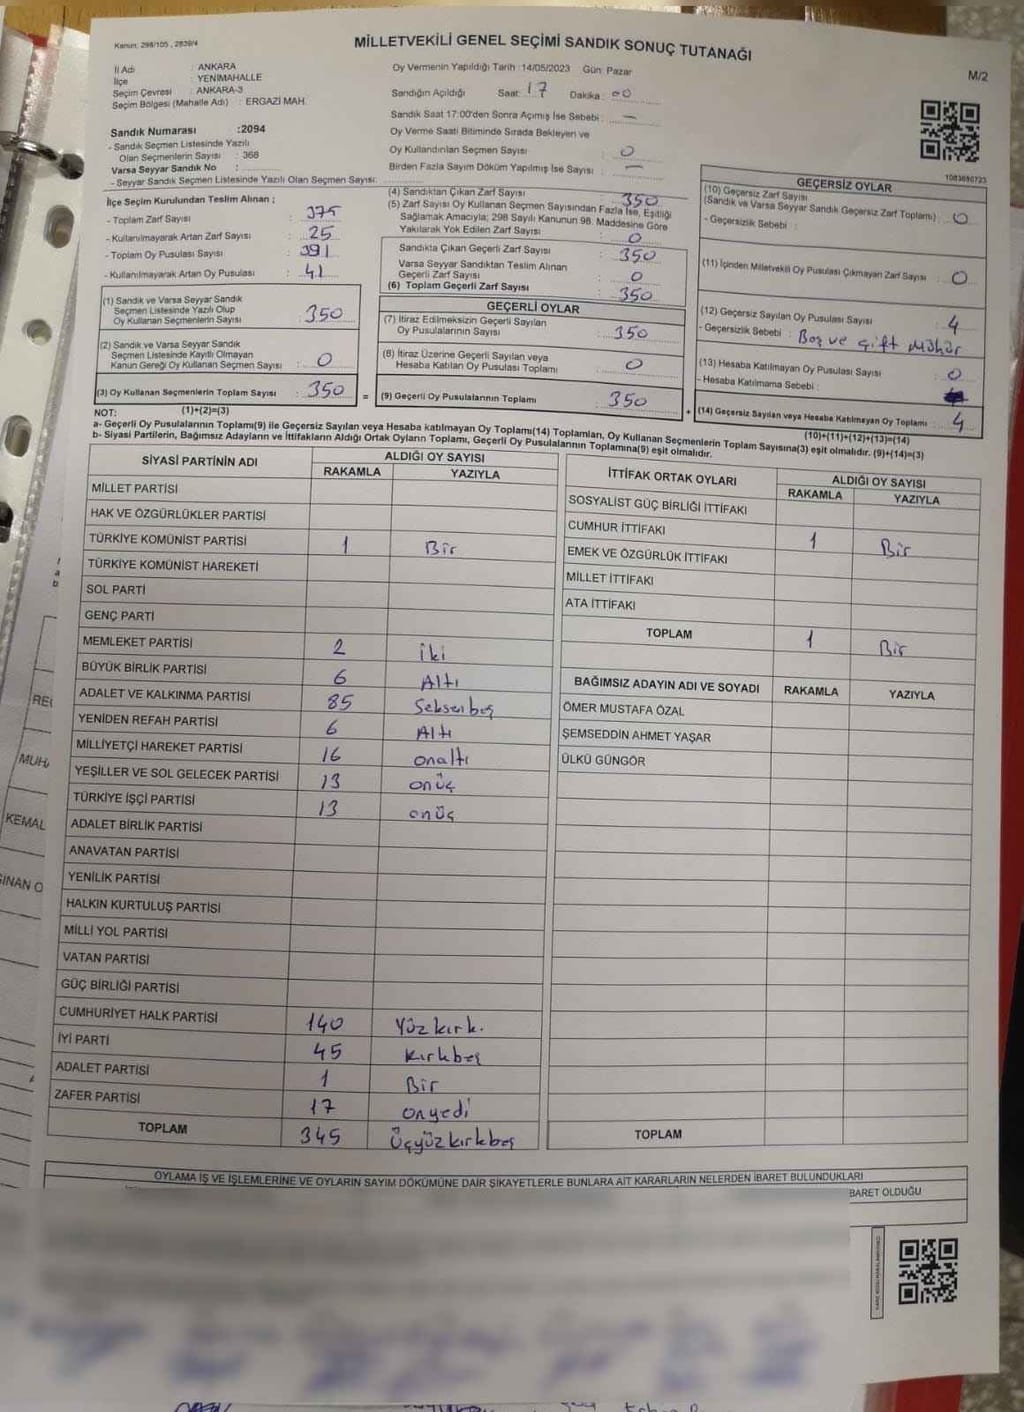 Kanun: 298/105 , 2839/4
MİLLETVEKİLİ GENEL SEÇİMİ SANDIK SONUÇ TUTANAĞI
M/2
İl Adı : ANKARA
İlçe : YENİMAHALLE
Seçim Çevresi : ANKARA-3
Seçim Bölgesi (Mahalle Adı) : ERGAZİ MAH.
Oy Vermenin Yapıldığı Tarih :14/05/2023 Gün: Pazar
Sandığın Açıldığı Saat: 17 Dakika: 00
Sandık Saat 17:00'den Sonra Açımış İse Sebebi : —
Oy Verme Saati Bitiminde Sırada Bekleyen ve
Oy Kullandırılan Seçmen Sayısı : 0
Birden Fazla Sayım Döküm Yapılmış İse Sayısı : —
Sandık Numarası :2094
- Sandık Seçmen Listesinde Yazılı
Olan Seçmenlerin Sayısı : 368
Varsa Seyyar Sandık No :
- Seyyar Sandık Seçmen Listesinde Yazılı Olan Seçmen Sayısı:
1083680723
İlçe Seçim Kurulundan Teslim Alınan ;
- Toplam Zarf Sayısı : 375
- Kullanılmayarak Artan Zarf Sayısı : 25
- Toplam Oy Pusulası Sayısı : 391
- Kullanılmayarak Artan Oy Pusulası : 41
(1) Sandık ve Varsa Seyyar Sandık
Seçmen Listesinde Yazılı Olup
Oy Kullanan Seçmenlerin Sayısı : 350
(2) Sandık ve Varsa Seyyar Sandık
Seçmen Listesinde Kayıtlı Olmayan
Kanun Gereği Oy Kullanan Seçmen Sayısı : 0
(3) Oy Kullanan Seçmenlerin Toplam Sayısı : 350
(1)+(2)=(3)
(4) Sandıktan Çıkan Zarf Sayısı : 350
(5) Zarf Sayısı Oy Kullanan Seçmen Sayısından Fazla İse, Eşitliği
Sağlamak Amacıyla; 298 Sayılı Kanunun 98. Maddesine Göre
Yakılarak Yok Edilen Zarf Sayısı : 0
Sandıkta Çıkan Geçerli Zarf Sayısı : 350
Varsa Seyyar Sandıktan Teslim Alınan
Geçerli Zarf Sayısı : 0
(6) Toplam Geçerli Zarf Sayısı : 350
GEÇERLİ OYLAR
(7) İtiraz Edilmeksizin Geçerli Sayılan
Oy Pusulalarının Sayısı : 350
(8) İtiraz Üzerine Geçerli Sayılan veya
Hesaba Katılan Oy Pusulası Toplamı : 0
= (9) Geçerli Oy Pusulalarının Toplamı : 350
GEÇERSİZ OYLAR
(10) Geçersiz Zarf Sayısı
(Sandık ve Varsa Seyyar Sandık Geçersiz Zarf Toplamı) : 0
- Geçersizlik Sebebi :
(11) İçinden Milletvekili Oy Pusulası Çıkmayan Zarf Sayısı : 0
(12) Geçersiz Sayılan Oy Pusulası Sayısı : 4
- Geçersizlik Sebebi : Boş ve Çift Mühür
(13) Hesaba Katılmayan Oy Pusulası Sayısı : 0
- Hesaba Katılmama Sebebi :
+ (14) Geçersiz Sayılan veya Hesaba Katılmayan Oy Toplamı : 4
(10)+(11)+(12)+(13)=(14)
NOT:
a- Geçerli Oy Pusulalarının Toplamı(9) ile Geçersiz Sayılan veya Hesaba katılmayan Oy Toplamı(14) Toplamları, Oy Kullanan Seçmenlerin Toplam Sayısına(3) eşit olmalıdır. (9)+(14)=(3)
b- Siyasi Partilerin, Bağımsız Adayların ve İttifakların Aldığı Ortak Oyların Toplamı, Geçerli Oy Pusulalarının Toplamına(9) eşit olmalıdır.
SİYASİ PARTİNİN ADI ALDIĞI OY SAYISI
RAKAMLA YAZIYLA
MİLLET PARTİSİ
HAK VE ÖZGÜRLÜKLER PARTİSİ
TÜRKİYE KOMÜNİST PARTİSİ 1 Bir
TÜRKİYE KOMÜNİST HAREKETİ
SOL PARTİ
GENÇ PARTİ
MEMLEKET PARTİSİ 2 iki
BÜYÜK BİRLİK PARTİSİ 6 Altı
ADALET VE KALKINMA PARTİSİ 85 Seksenbeş
YENİDEN REFAH PARTİSİ 6 Altı
MİLLİYETÇİ HAREKET PARTİSİ 16 onaltı
YEŞİLLER VE SOL GELECEK PARTİSİ 13 onüç
TÜRKİYE İŞÇİ PARTİSİ 13 onüç
ADALET BİRLİK PARTİSİ
ANAVATAN PARTİSİ
YENİLİK PARTİSİ
HALKIN KURTULUŞ PARTİSİ
MİLLİ YOL PARTİSİ
VATAN PARTİSİ
GÜÇ BİRLİĞİ PARTİSİ
CUMHURİYET HALK PARTİSİ 140 Yüzkırk.
İYİ PARTİ 45 Kırkbeş
ADALET PARTİSİ 1 Bir
ZAFER PARTİSİ 17 onyedi
TOPLAM 345 Üçyüzkırkbeş
İTTİFAK ORTAK OYLARI ALDIĞI OY SAYISI
RAKAMLA YAZIYLA
SOSYALİST GÜÇ BİRLİĞİ İTTİFAKI
CUMHUR İTTİFAKI 1 Bir
EMEK VE ÖZGÜRLÜK İTTİFAKI
MİLLET İTTİFAKI
ATA İTTİFAKI
TOPLAM 1 Bir
BAĞIMSIZ ADAYIN ADI VE SOYADI RAKAMLA YAZIYLA
ÖMER MUSTAFA ÖZAL
ŞEMSEDDİN AHMET YAŞAR
ÜLKÜ GÜNGÖR
TOPLAM
OYLAMA İŞ VE İŞLEMLERİNE VE OYLARIN SAYIM DÖKÜMÜNE DAİR ŞİKAYETLERLE BUNLARA AİT KARARLARIN NELERDEN İBARET BULUNDUKLARI
BARET OLDUĞU
MUH
KEMAL